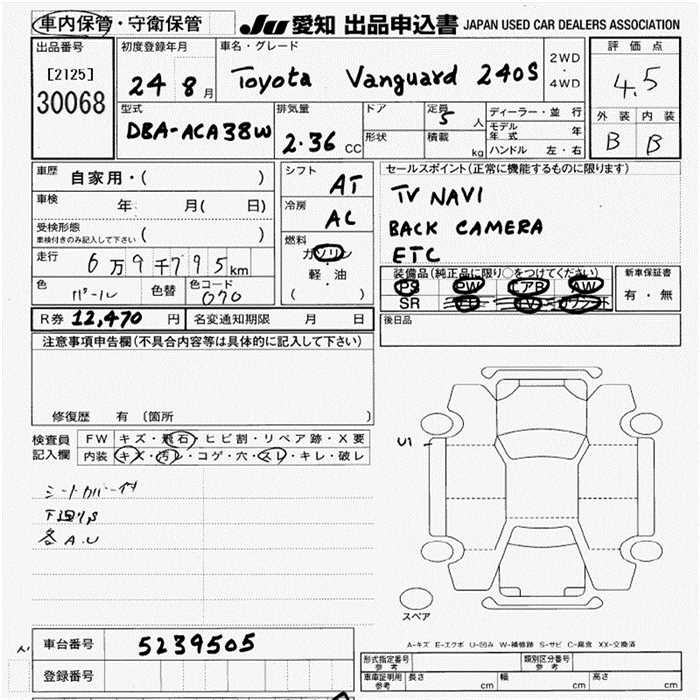 車内保管・守衛保管 JU 愛知 出品申込書 JAPAN USED CAR DEALERS ASSOCIATION
出品番号 初度登録年月 車名・グレード 2WD・4WD 評価点
[2125] 30068 24 8月 Toyota Vanguard 240S 4.5
型式 排気量 ドア 定員 5人 ディーラー・並行 外装 内装
DBA-ACA38W 2.36 CC 形状 積載 kg モデル年式 年 B B
ハンドル 左・右
車歴 自家用・( ) シフト AT セールスポイント(正常に機能するものに限ります)
車検 年 月( 日) 冷房 AC TV NAVI
受検形態 ( ) BACK CAMERA
車検付きのみ記入して下さい 燃料 ガソリン ETC
走行 6万9千795km 軽・油 装備品(純正品に限り○をつけてください) 新車保証書
色 パール 色替 色コード 070 ( ) PS PW エアB AW 有・無
SR TV
R券 12,470 円 名変通知期限 月 日 後日品
注意事項申告欄(不具合内容等は具体的に記入して下さい)
修復歴 有 〔箇所 〕
検査員記入欄 FW キズ・飛石・ヒビ割・リペア跡・X要
内装 キズ・汚レ・コゲ・穴・スレ・キレ・破レ
U1
シートカバー付
下廻りS
各A.U
スペア
A-キズ E-エクボ U-凹み W-補修跡 S-サビ C-腐食 XX-交換済
車台番号 5239505
登録番号
形式指定番号 参考 類別区分番号 参考
車庫証明用 参考 長さ cm 幅 cm 高さ cm